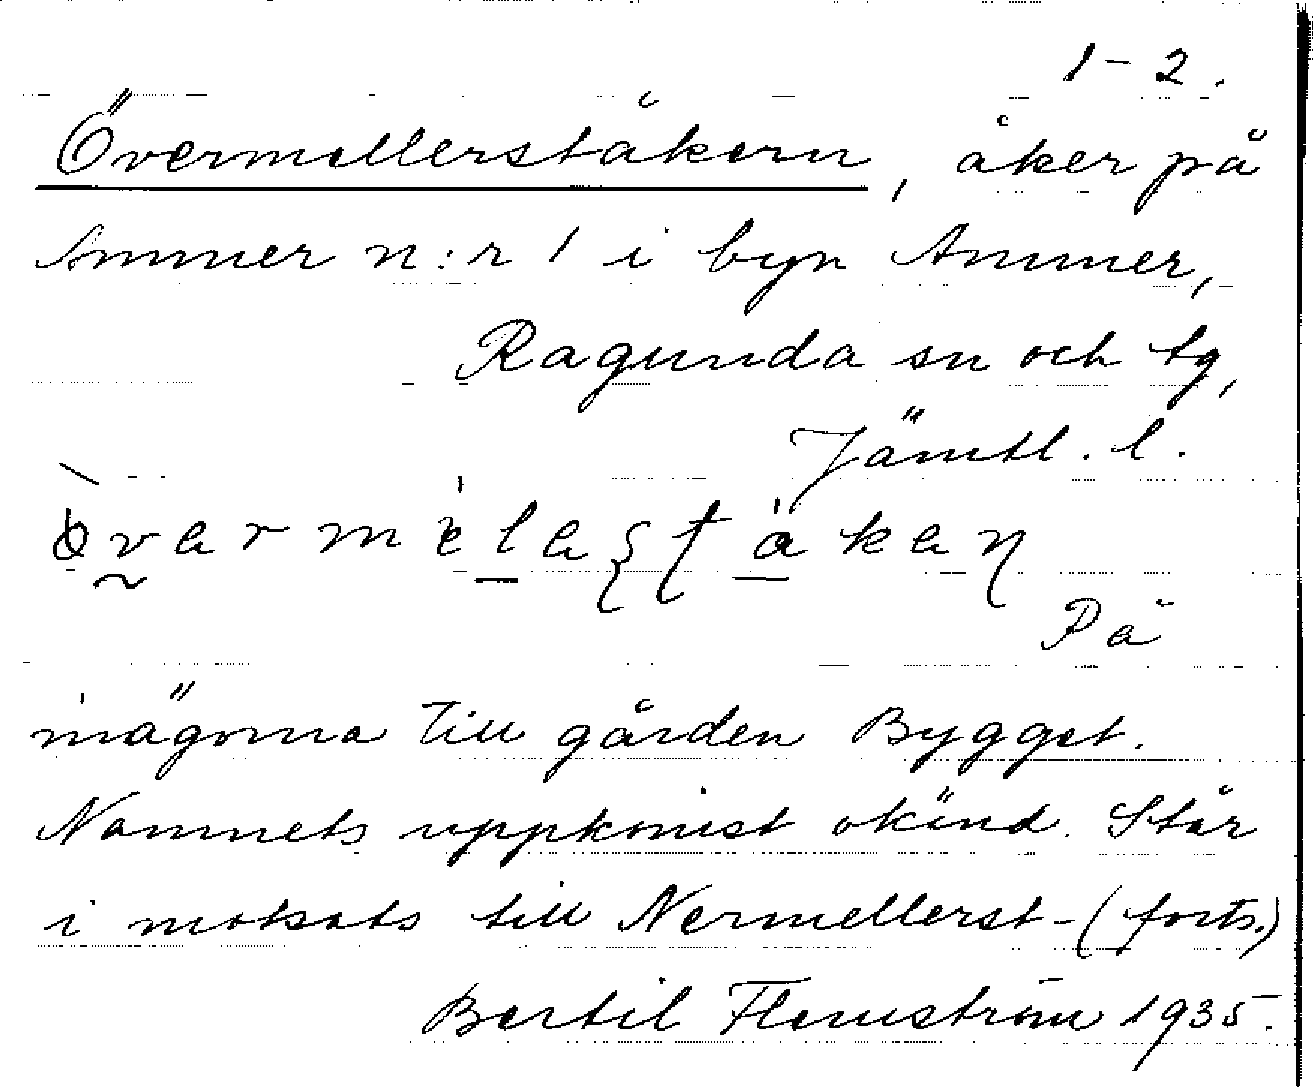 1-2.
Övermellerståkern, åker på
Ammer n:r 1 i byn Ammer,
Ragunda sn och tg,
Jämtl. l.
På
inägorna till gården Bygget.
Namnets uppkomst okänd. Står
i motsats till Nermellerst-(forts.)
Bertil Flemström 1935.